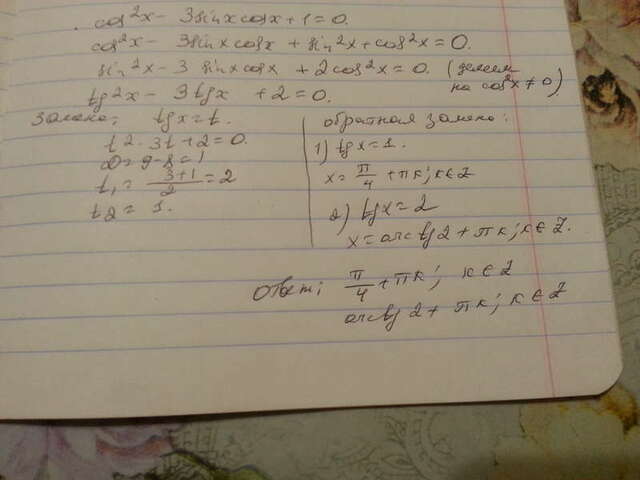 cos²x - 3sinxcosx + 1 = 0.
cos²x - 3sinxcosx + sin²x + cos²x = 0.
sin²x - 3 sinxcosx + 2cos²x = 0. (делим на cos²x ≠ 0)
tg²x - 3tgx + 2 = 0.
Замена: tgx = t.
t² - 3t + 2 = 0.
D = 9 - 8 = 1
t₁ = (3+1)/2 = 2
t₂ = 1.
обратная замена:
1) tgx = 1.
x = π/4 + πк; к ∈ Z
2) tgx = 2
x = arctg2 + πк; к ∈ Z.
Ответ: π/4 + πк; к ∈ Z
arctg2 + πк; к ∈ Z